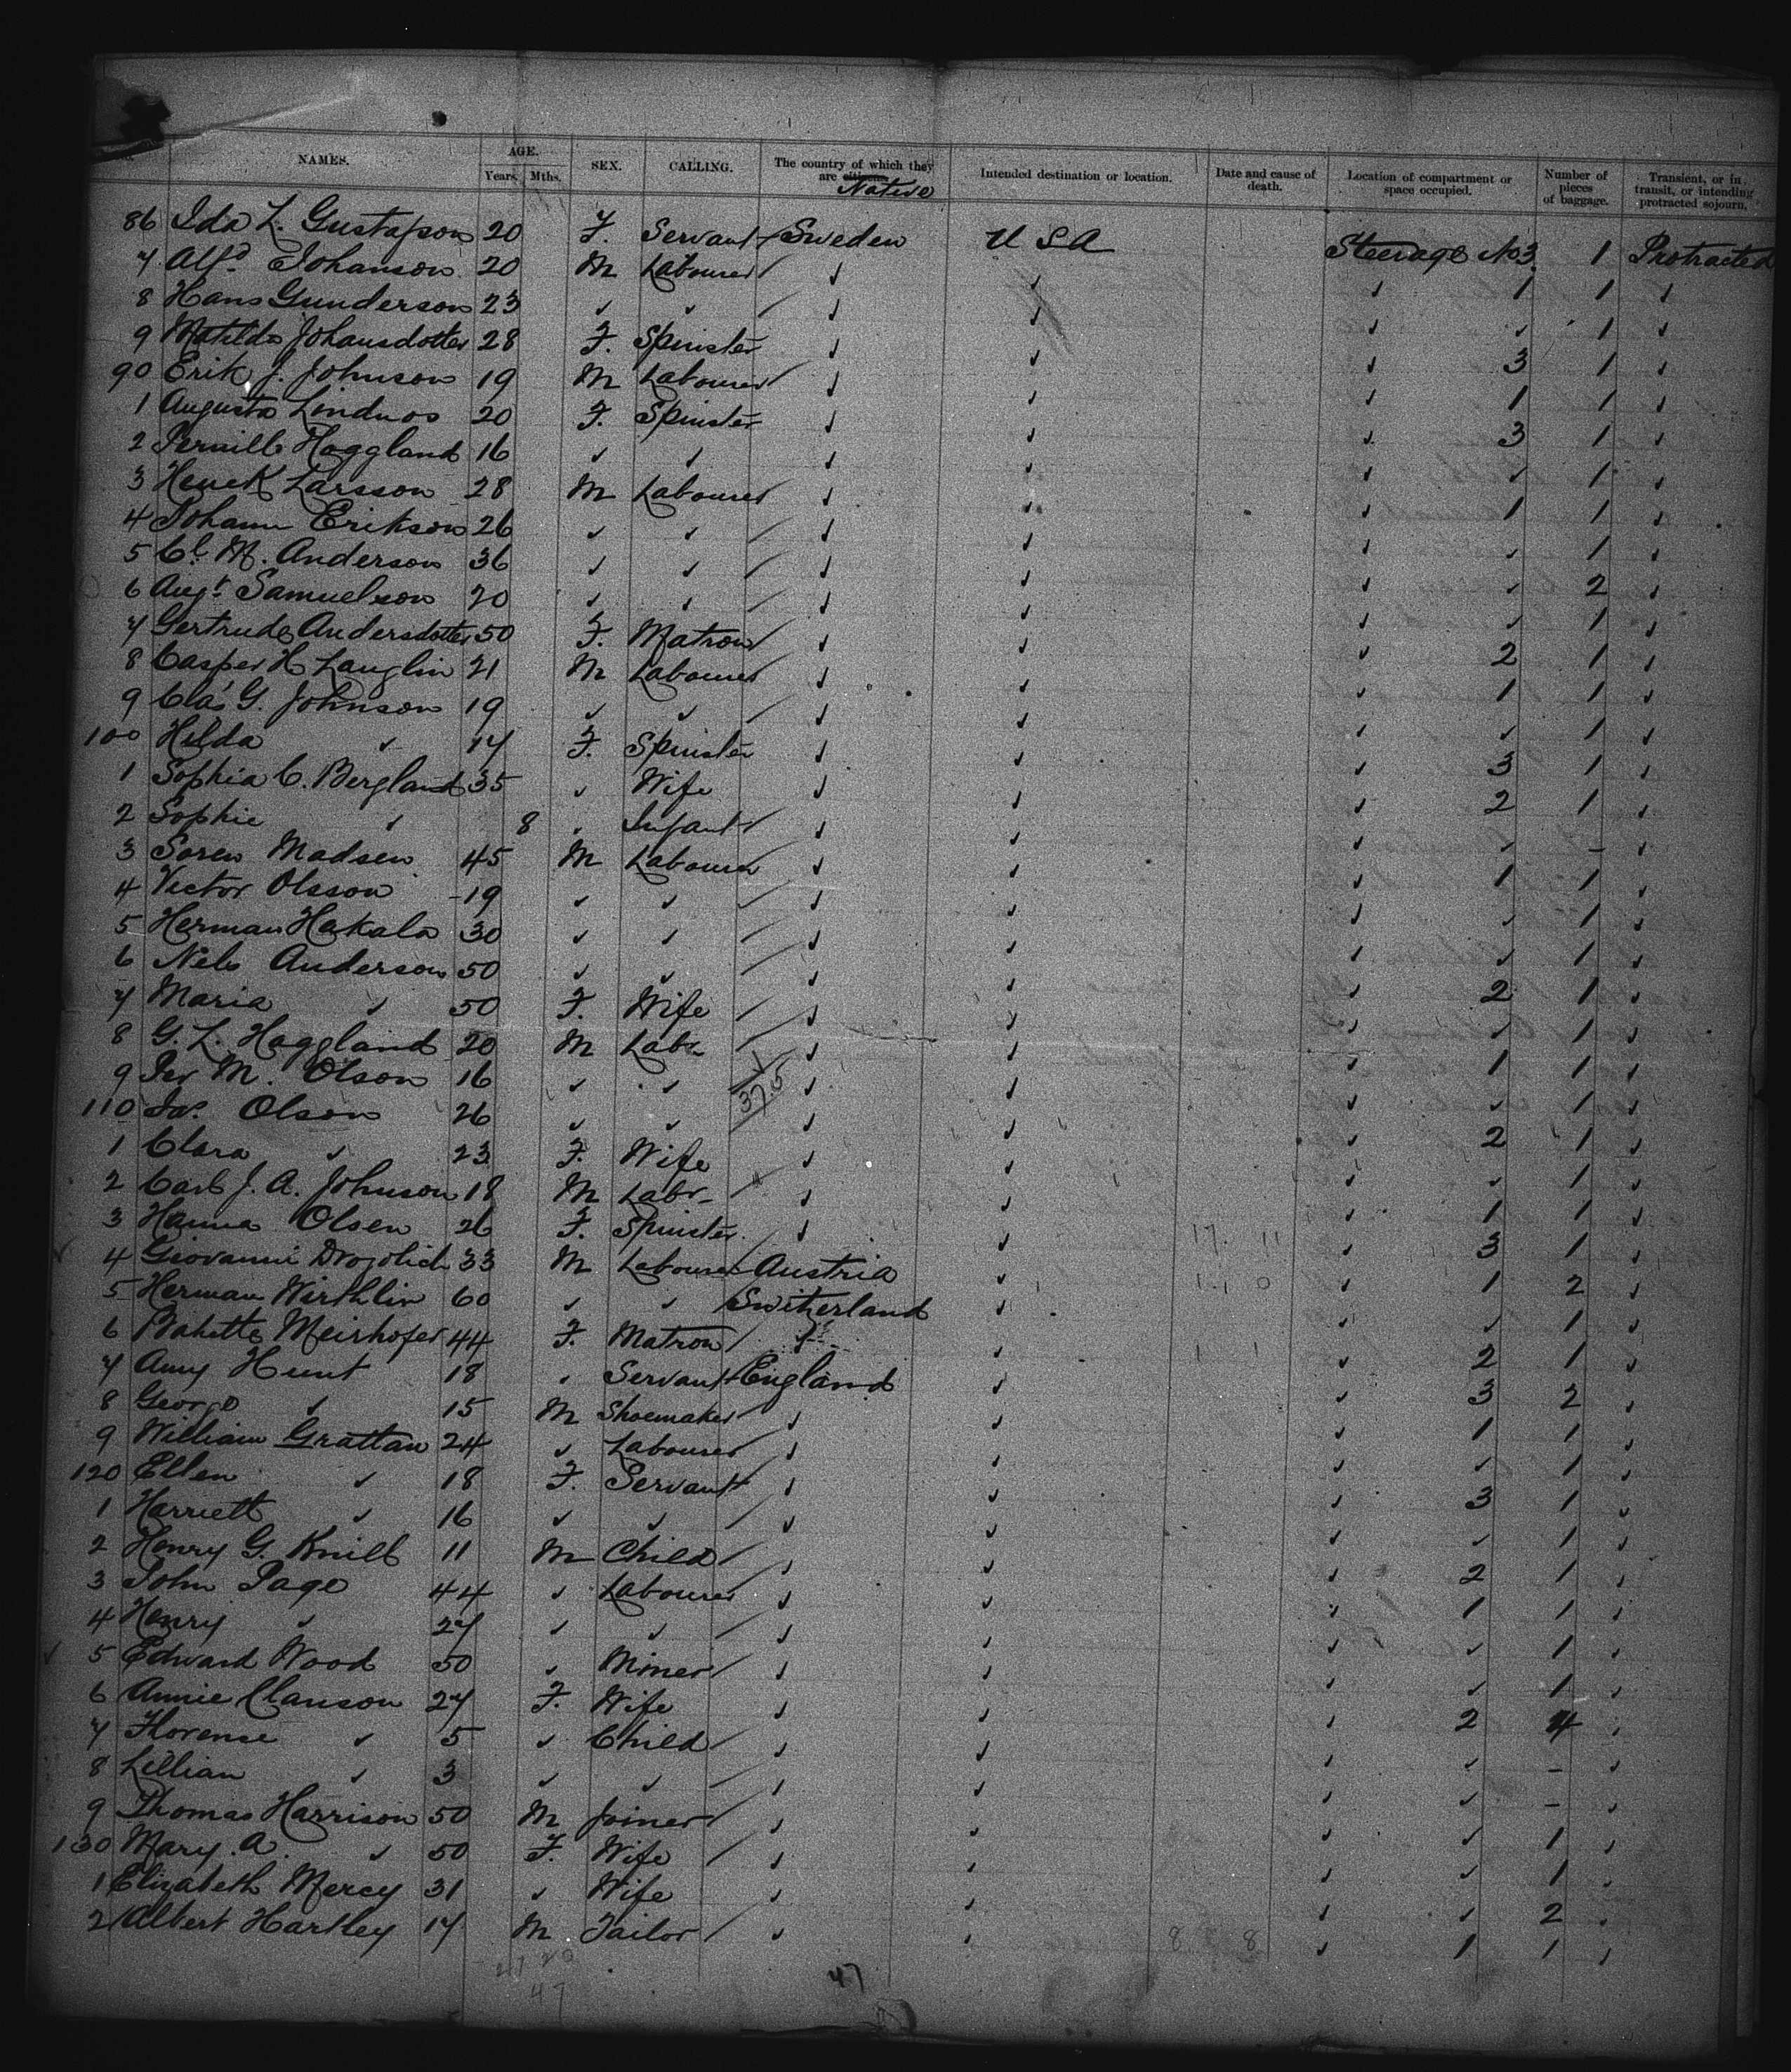 NAMES. AGE. Years. Mths. SEX. CALLING. The country of which they are citizens Native Intended destination or location. Date and cause of death. Location of compartment or space occupied. Number of pieces of baggage. Transient, or in transit, or intending protracted sojourn.
86 Ida L. Gustafson 20 F. Servant Sweden USA Steerage No 3 1 Protracted
7 Alfd Johanson 20 M Labourer ✓ ✓ ✓ 1 1 ✓
8 Hans Gunderson 23 ✓ ✓ ✓ ✓ ✓ ✓ 1 ✓
9 Matilda Johansdotter 28 F. Spinster ✓ ✓ ✓ 3 1 ✓
90 Erik J. Johnson 19 M Labourer ✓ ✓ ✓ 1 1 ✓
1 Augusta 20 F. Spinster ✓ ✓ ✓ 3 1 ✓
2 Pernille Haggland 16 ✓ ✓ ✓ ✓ ✓ ✓ 1 ✓
3 Larsson 28 M Labourer ✓ ✓ ✓ 1 1 ✓
4 Johann Erikson 26 ✓ ✓ ✓ ✓ ✓ ✓ 1 ✓
5 M. Anderson 36 ✓ ✓ ✓ ✓ ✓ ✓ 2 ✓
6 Augt Samuelson 20 ✓ ✓ ✓ ✓ ✓ ✓ 1 ✓
7 Gertrude Andersdotter 50 F. Matron ✓ ✓ ✓ 2 1 ✓
8 Casper H Lauglin 21 M Labourer ✓ ✓ ✓ 1 1 ✓
9 Clas G. Johnson 19 ✓ ✓ ✓ ✓ ✓ ✓ 1 ✓
100 Hilda ✓ 17 F. Spinster ✓ ✓ ✓ 3 1 ✓
1 Sophia C. Bergland 35 ✓ Wife ✓ ✓ ✓ 2 1 ✓
2 Sophie ✓ 8 ✓ Infant ✓ ✓ ✓ ✓ – ✓
3 Soren Madsen 45 M Labourer ✓ ✓ ✓ 1 1 ✓
4 Victor Olsson 19 ✓ ✓ ✓ ✓ ✓ ✓ 1 ✓
5 Herman Hakala 30 ✓ ✓ ✓ ✓ ✓ ✓ 1 ✓
6 Nels Anderson 50 ✓ ✓ ✓ ✓ ✓ 2 1 ✓
7 Maria ✓ 50 F. Wife ✓ ✓ ✓ ✓ 1 ✓
8 G. L. Haggland 20 M Labr ✓ ✓ ✓ 1 1 ✓
9 Per M. Olson 16 ✓ ✓ ✓ ✓ ✓ ✓ 1 ✓
110 Jas. Olson 26 ✓ ✓ ✓ ✓ ✓ 2 1 ✓
1 Clara ✓ 23 F. Wife ✓ ✓ ✓ ✓ 1 ✓
2 Carl J. A. Johnson 18 M Labr ✓ ✓ ✓ 1 1 ✓
3 Hanna Olsen 26 F. Spinster ✓ ✓ ✓ 3 1 ✓
4 Giovanni 33 M Labourer Austria ✓ ✓ 1 2 ✓
5 Herman Wirthlin 60 ✓ ✓ Switzerland ✓ ✓ ✓ 1 ✓
6 Babette Meirhofer 44 F. Matron ✓ ✓ 2 1 ✓
7 Amy Hunt 18 ✓ Servant England ✓ ✓ 3 2 ✓
8 George ✓ 15 M Shoemaker ✓ ✓ ✓ 1 1 ✓
9 William Grattan 24 ✓ Labourer ✓ ✓ ✓ ✓ 1 ✓
120 Ellen ✓ 18 F. Servant ✓ ✓ ✓ 3 1 ✓
1 Harriett ✓ 16 ✓ ✓ ✓ ✓ ✓ ✓ 1 ✓
2 Henry G. Knill 11 M Child ✓ ✓ ✓ 2 1 ✓
3 John Page 44 ✓ Labourer ✓ ✓ ✓ 1 1 ✓
4 Henry ✓ 27 ✓ ✓ ✓ ✓ ✓ ✓ 1 ✓
5 Edward Wood 50 ✓ Miner ✓ ✓ ✓ ✓ 1 ✓
6 Annie Clauson 27 F. Wife ✓ ✓ ✓ 2 4 ✓
7 Florence ✓ 5 ✓ Child ✓ ✓ ✓ ✓ – ✓
8 Lillian ✓ 3 ✓ ✓ ✓ ✓ ✓ ✓ – ✓
9 Thomas Harrison 50 M Joiner ✓ ✓ ✓ ✓ 1 ✓
130 Mary. A. ✓ 50 F. Wife ✓ ✓ ✓ ✓ 1 ✓
1 Elizabeth Mercy 31 ✓ Wife ✓ ✓ ✓ ✓ 2 ✓
2 Albert Hartley 17 M Tailor ✓ ✓ 8 8 ✓ 1 1 ✓
27 20 47
47